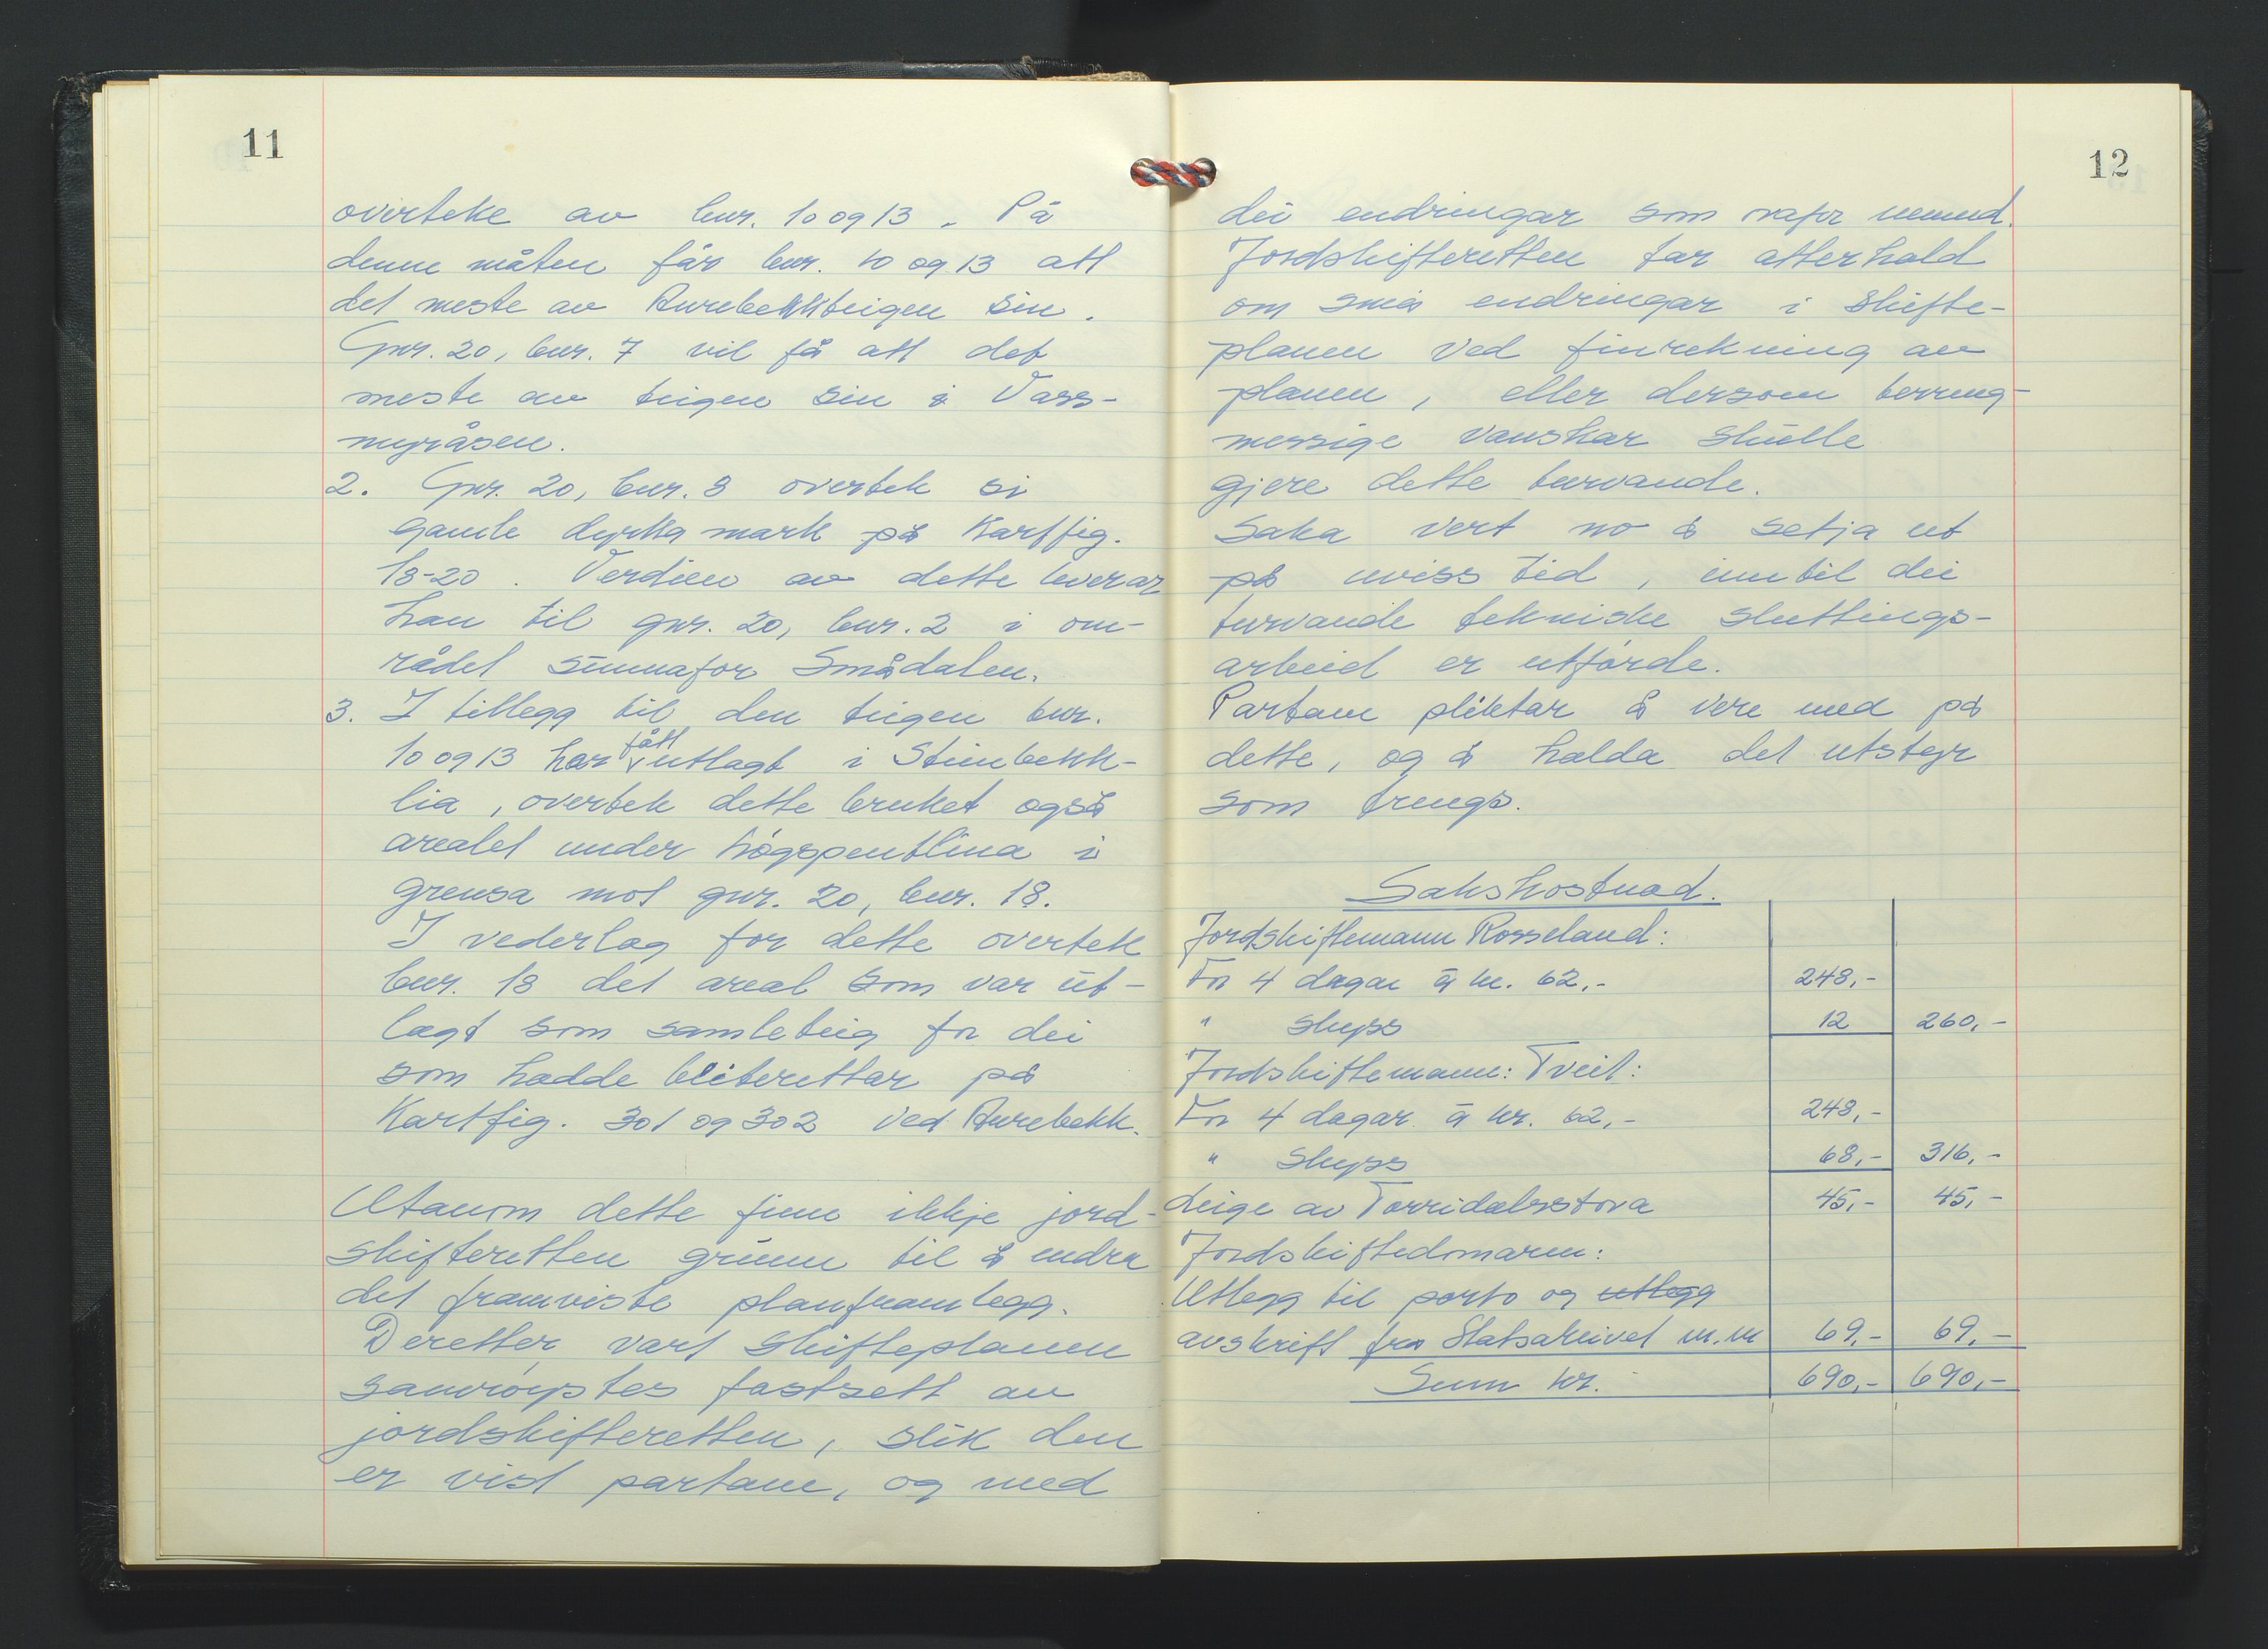 11
overteke av bnr. 10 og 13. På
denne måten får bnr. 10 og 13 att
det meste av Aurebekkteigen sin.
Gnr. 20, bnr. 7 vil få att det
meste av teigen sin i Vass-
myråsen.
2. Gnr. 20, bnr. 3 overtek si
gamle dyrka mark på Kartfig.
18-20. Verdien av dette leverar
han til gnr. 20, bnr. 2 i om-
rådet sunnafor Smådalen.
3. I tillegg til den teigen bnr.
10 og 13 har fått utlagt i Steinbekk-
lia, overtek dette bruket også
arealet under høgspentlina i
grensa mot gnr. 20, bnr. 18.
I vederlag for dette overtek
bnr. 18 det areal som var ut-
lagt som samleteig for dei
som hadde beiterettar på
Kartfig. 301 og 302 ved Aurebekk.
Utanom dette finn ikkje jord-
skifteretten grunn til å endra
det framviste planframlegg.
Deretter vart skifteplanen
samrøystes fastsett av
jordskifteretten, slik den
er vist partane, og med
12
dei endringar som ovafor nemnd.
Jordskifteretten tar atterhald
om små endringar i skifte-
planen ved finrekning av
planen, eller dersom terreng-
messige vanskar skulle
gjere dette turvande.
Saka vert no å setja ut
på uviss tid, inntil dei
turvande tekniske sluttings-
arbeid er utførde.
Partane pliktar å vere med på
dette, og å halda det utstyr
som trengs.
Sakskostnad.
Jordskiftemann Rosseland:
For 4 dagar à kr. 62,- 248,-
" skyss 12 260,-
Jordskiftemann: Tveit:
For 4 dagar à kr. 62,- 248,-
" skyss 68,- 316,-
Leige av Torridalsstova 45,- 45,-
Jordskiftedomaren:
Utlegg til porto og utlegg
avskrift fra Statsarkivet m.m 69,- 69,-
Sum kr. 690,- 690,-